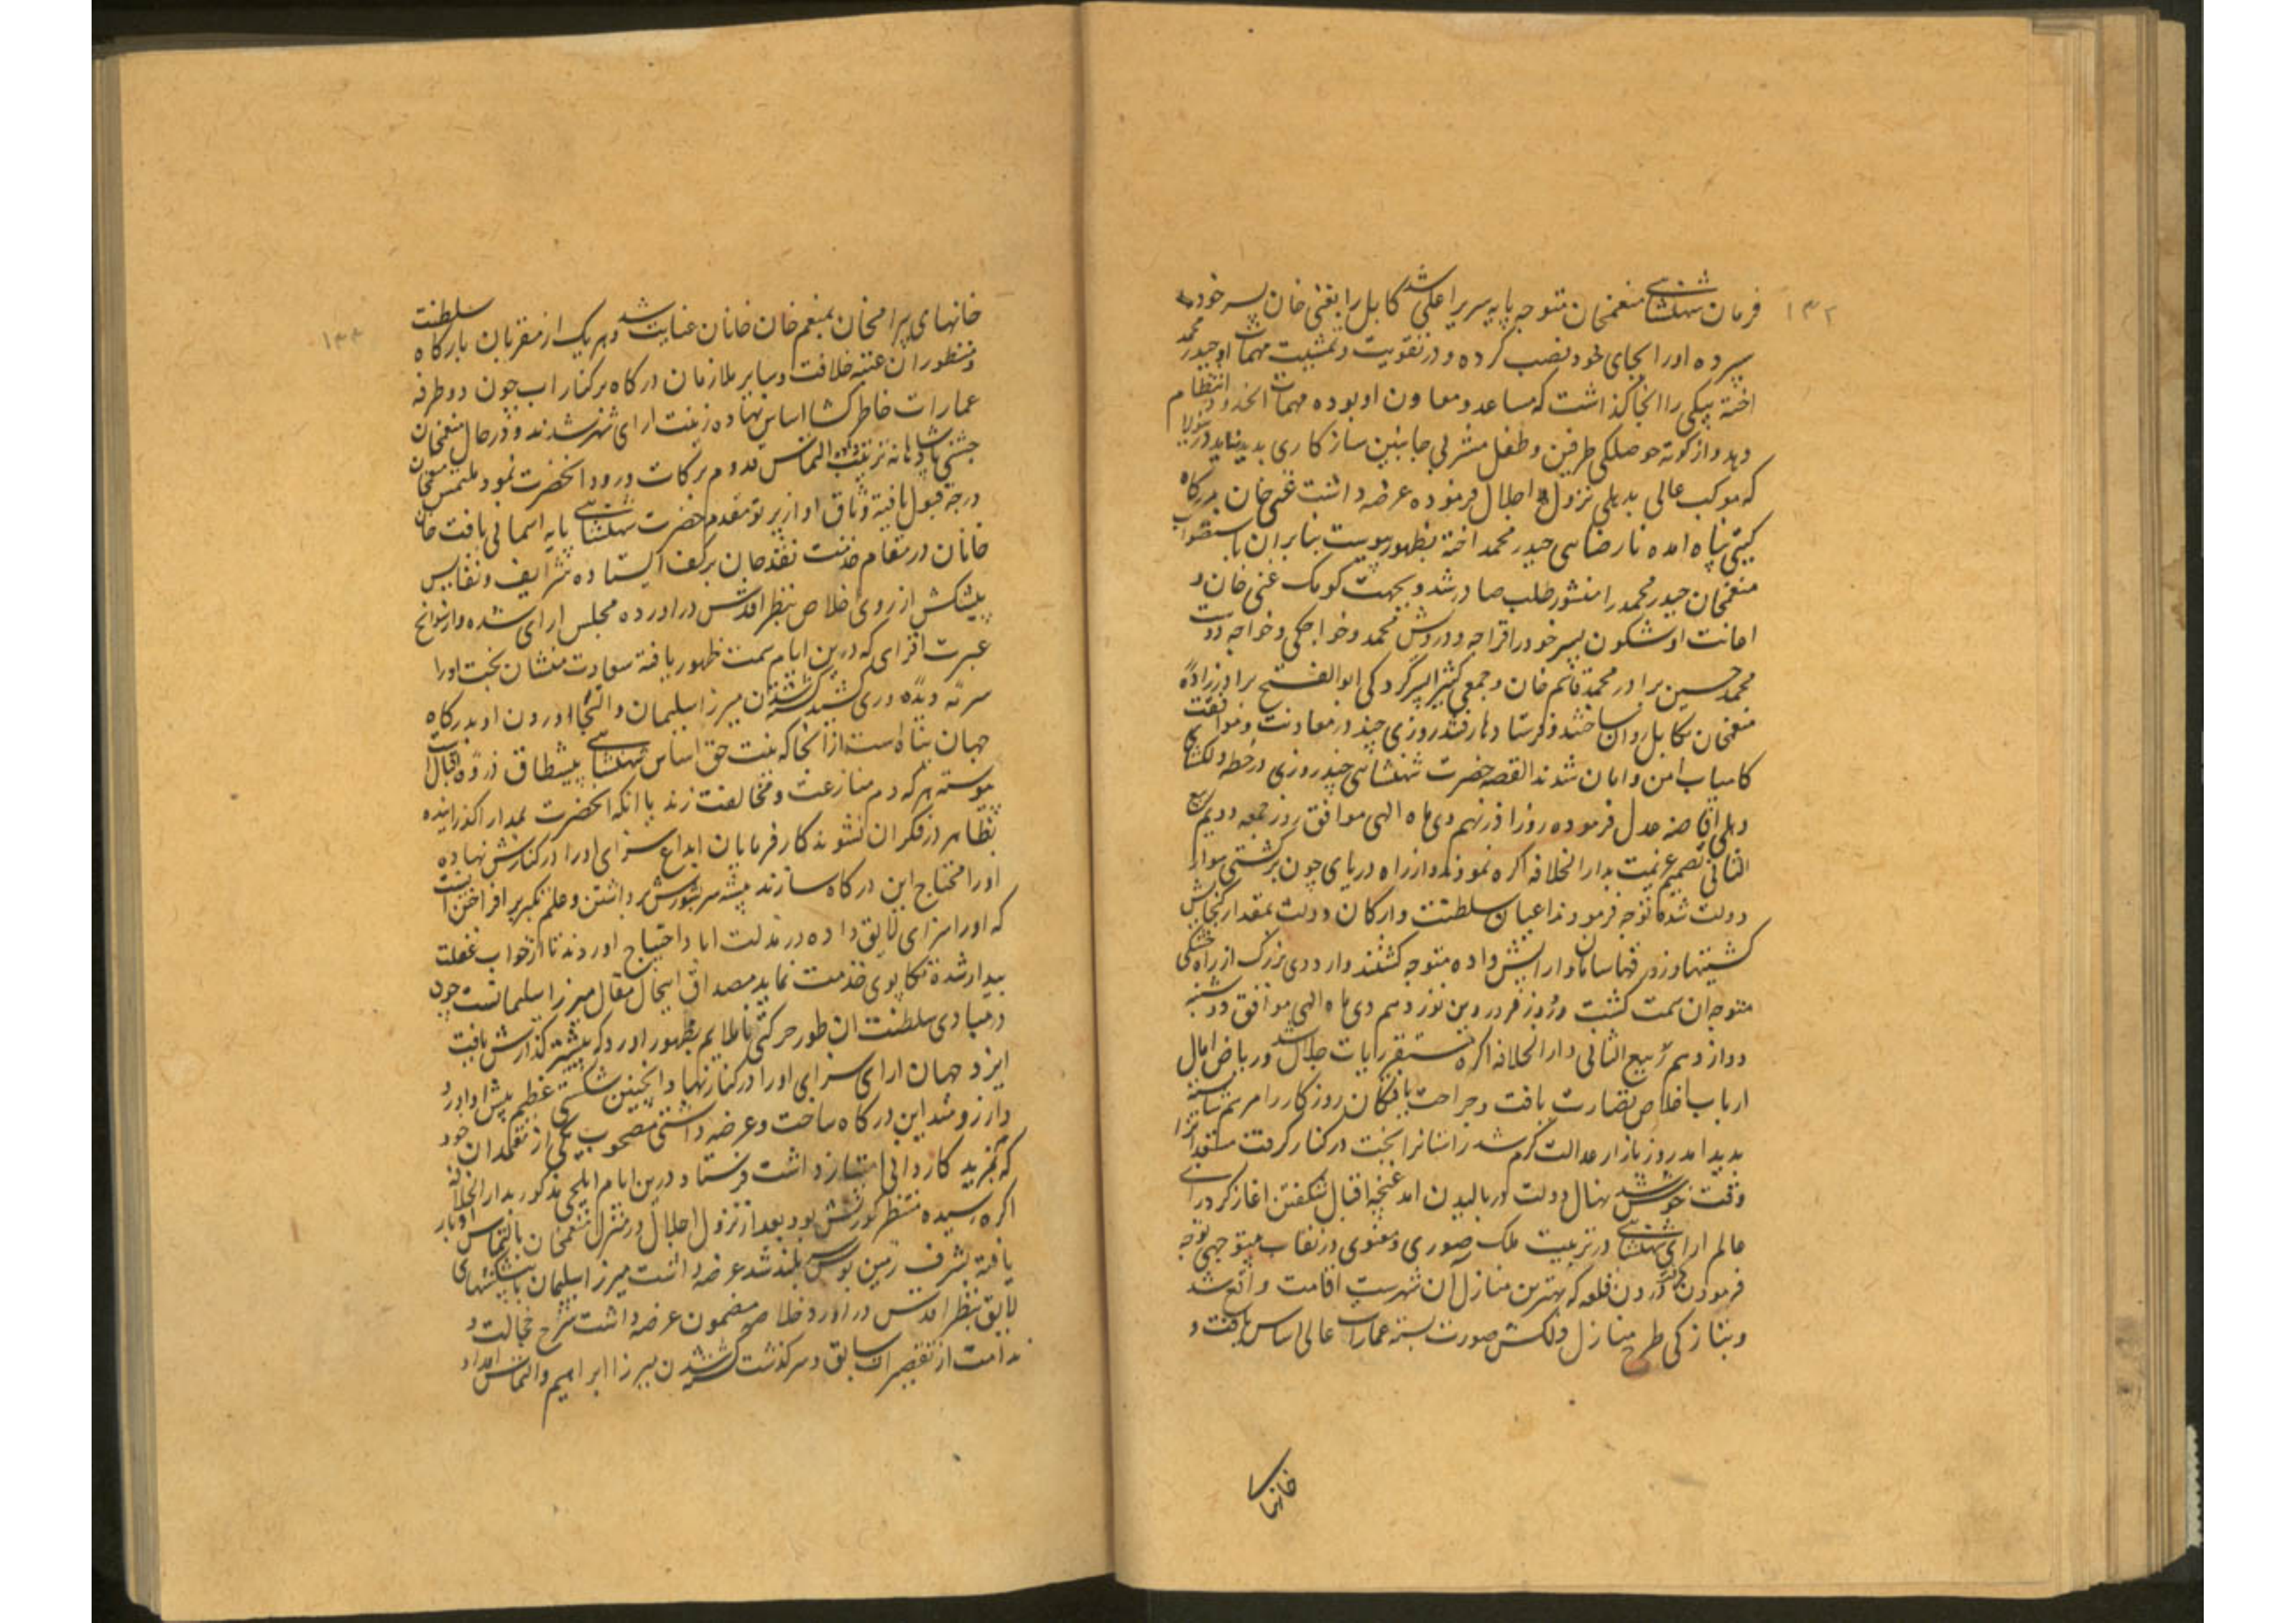 ۱۳۲
فرمان شهنشاهی منعمخان متوجه پایه سریر اعلی شد کابل را بغنی خان پسر خود
سپرده اورا بجای خود نصب کرده و در تقویت و تمشیت مهمات او حیدر محمد
اخته بیکی را انجا گذاشت که مساعد و معاون او بوده مهمات انحدود را انتظام
دهد و از کوته حوصلکی طرفین و طفل مشربی جانبین سازکاری پدید نیامد درینولا
که موکب عالی بدهلی نزول اجلال فرموده عرضه داشت غنی خان بدرکاه
کیتی پناه امده نارضایی حیدر محمد اخته بظهور پیوست بنابران باستصواب
منعمخان حیدر محمد را منشور طلب صادر شد و بجهت کومک غنی خان و
اعانت او شکون پسر خود را قراجه و درویش محمد و خواجکی و خواجه دوست
محمد حسین برادر محمد قاسم خان و جمعی کثیر بسرکردکی ابوالفتح برادرزاده
منعمخان بکابل روان ساختند و فرستادها رفته روزی چند در معاونت و موافقت
کامیاب امن و امان شدند القصه حضرت شهنشاهی چند روزی در خطه دلکشای
دهلی افاضه عدل فرموده روز اذر نهم دی ماه الهی موافق روز جمعه دویم ربیع
الثانی تصمیم عزیمت بدار الخلافه اکره نموده و از راه دریای جون برکشتی سوار
دولت شده توجه فرمودند اعیان سلطنت و ارکان دولت بمقدار کنجایش
کشتیها و زورقها سامان و ارایش داده متوجه کشتند و اردوی بزرک از راه خشکی
متوجه ان سمت کشت و روز فروردین نوزدهم دی ماه الهی موافق دوشنبه
دوازدهم ربیع الثانی دار الخلافه اکره مستقر رایات جلال شد و ریاض امال
ارباب اخلاص نضارت یافت و جراحت یافتکان روزکار را مرهم شایسته
پدید امد روز بازار عدالت کرم شد راستانرا بخت در کنار کرفت مستعدانرا
وقت خوش شد نهال دولت در بالیدن امد غنچه اقبال شکفتن اغاز کرد رای
عالم ارای شهنشاهی در تربیت ملک صوری و معنوی در نقاب بیتوجهی توجه
فرمودن کرفت درون قلعه که بهترین منازل ان شهرست اقامت واقع شد
و بتازکی طرح منازل دلکش صورت بسته عمارات عالی اساس یافت و
خانهای
۱۳۳
خانهای بیرامخان بمنعم خان خانان عنایت شد و هر یک از مقربان بارکاه سلطنت
و منظوران عتبه خلافت و سایر ملازمان درکاه برکنار اب جون دو طرفه
عمارات خاطرکشا اساس نهاده زینت ارای شهر شدند و درحال منعمخان
جشنی پادشاهانه ترتیب داده التماس قدوم برکات ورود انحضرت نمود ملتمس منعمخان
درجه قبول یافته وثاق او از پرتو مقدم حضرت شهنشاهی پایه اسمانی یافت خان
خانان در مقام خدمت نقد جان برکف ایستاده شرایف و نفایس
پیشکش از روی اخلاص بنظر اقدس دراورده مجلس ارای شده و از سوانح
عبرت افزای که درین ایام سمت ظهور یافته سعادت منشان بخت اورا
سرمه دیده وری شد شکسته شدن میرزا سلیمان و التجا اوردن او بدرکاه
جهان پناه است از انجا که نیت حق اساس شهنشاهی پیشطاق ذروه اقبال است
پیوسته هر که دم منازعت و مخالفت زند با انکه انحضرت بمدارا کذرانیده
بظاهر در فکر ان نشوند کارفرمایان ابداع سزای اورا در کنارش نهاده
اورا محتاج این درکاه سازند پیشه سر شورش برداشتن و علم تکبر برافراختن است
که اورا سزای لایق داده در مذلت اباد احتیاج اوردند تا از خواب غفلت
بیدار شده تکاپوی خدمت نماید مصداق اینحال مقال میرزا سلیمانست چون
در مبادی سلطنت ان طور حرکتی ناملایم بظهور اورد که پیشتر کذارش یافت
ایزد جهان ارای سزای اورا در کنار نهاد و اینچنین شکستی عظیم پیش او اورد
و ارزومند این درکاه ساخت و عرضه داشتی مصحوب یکی از معتمدان خود
که بمزید کاردانی امتیاز داشت فرستاد درین ایام ایلچی مذکور بدار الخلافه
اکره رسیده منتظر کورنش بود بعد از نزول اجلال در منزل منعمخان بالتماس او بار
یافته بشرف زمین بوس بلند شد عرضه داشت میرزا سلیمان با پیشکشهای
لایق بنظر اقدس دراورد خلاصه مضمون عرضه داشت شرح خجالت و
ندامت از تقصیرات سابق و سرکذشت کشته شدن میرزا ابراهیم و التماس امداد